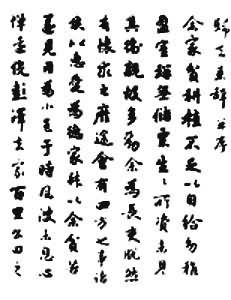 歸去来辭并序
余家貧耕植不足以自給幼稚
盈室缾無儲粟生生所資未見
其術親故多勸余為長吏脫然
有懷求之靡途會有四方之事諸
侯以惠愛為德家叔以余貧苦
遂見用為小邑于時風波未息心
憚遠役彭澤去家百里公田之